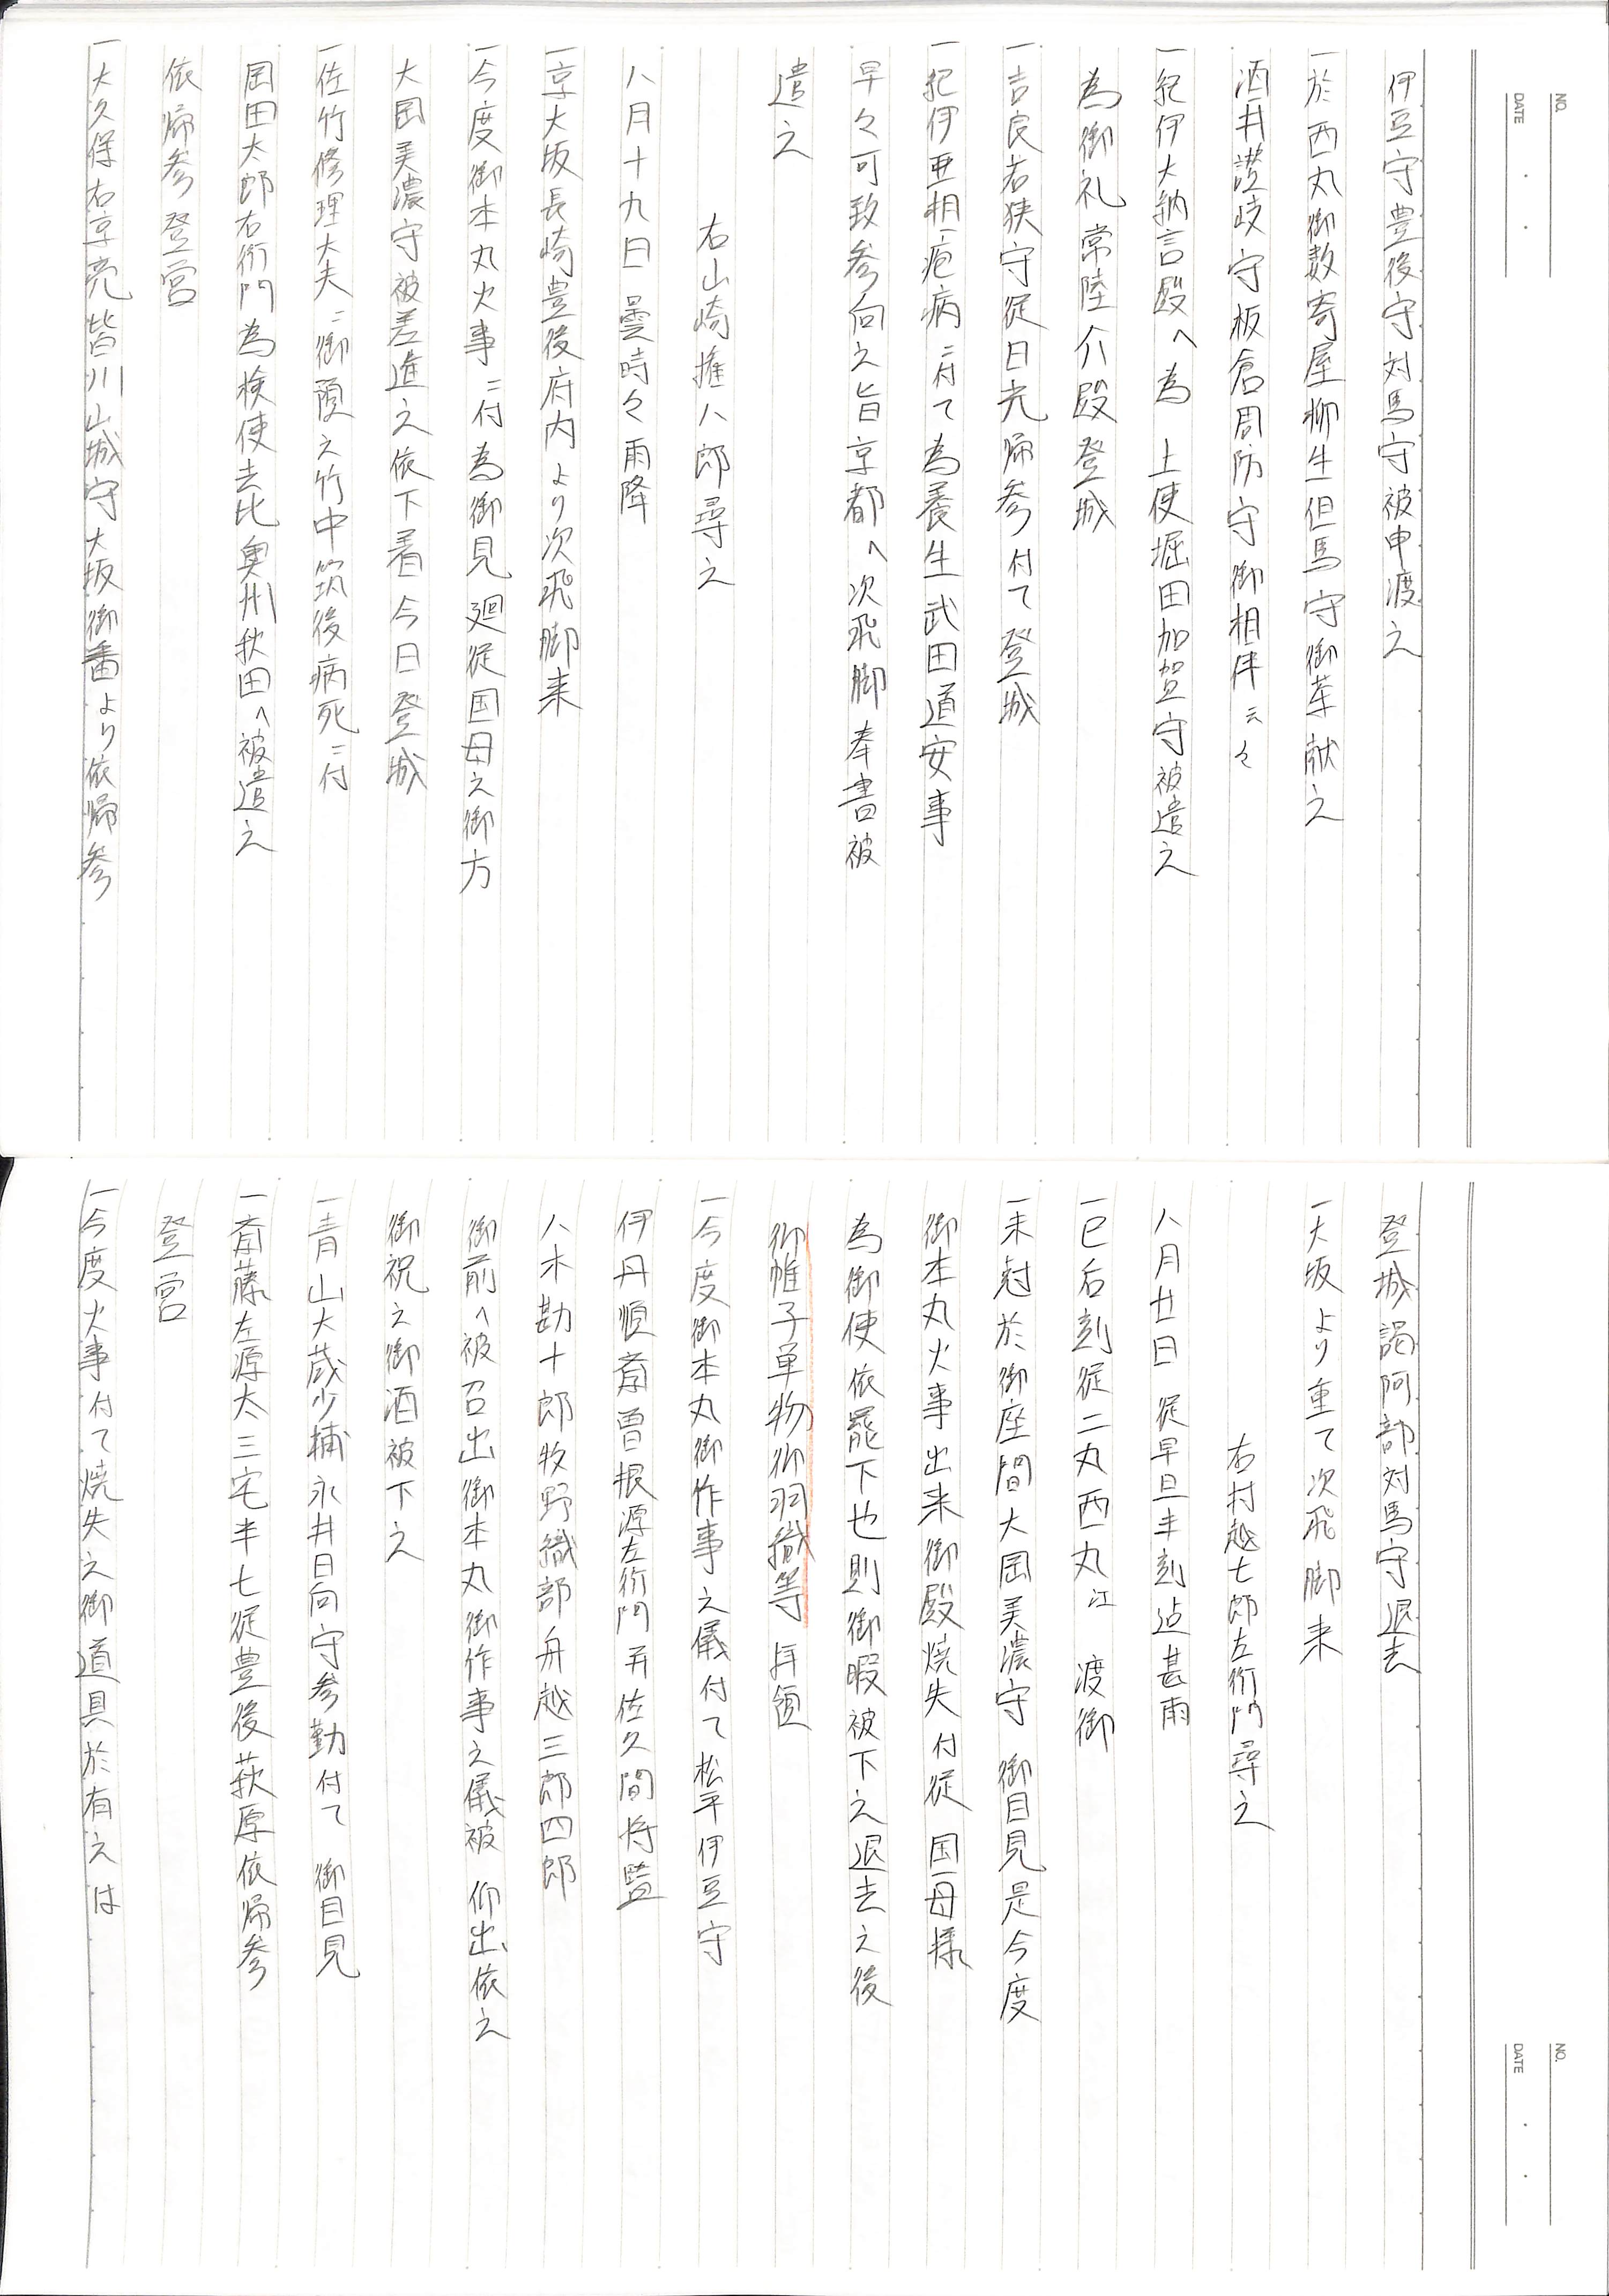 NO.
DATE
伊豆守豊後守対馬守被申渡之
一於西丸御数寄屋柳生但馬守御茶献之
酒井讃岐守板倉周防守御相伴云々
一紀伊大納言殿へ為 上使堀田加賀守被遣之
為御礼常陸介殿登城
一吉良若狭守従日光帰参付て登城
一紀伊亜相疱病ニ付て為養生武田道安事
早々可致参向之旨京都へ次飛脚奉書被
遣之
右山崎権八郎尋之
八月十九日曇時々雨降
一京大坂長崎豊後府内より次飛脚来
一今度御本丸火事ニ付為御見廻従国母之御方
大岡美濃守被差進之依下着今日登城
一佐竹修理大夫ニ御預之竹中筑後病死ニ付
岡田太郎右衛門為検使去比奥州秋田へ被遣之
依帰参登営
一大久保右京亮皆川山城守大坂御番より依帰参
NO.
DATE
登城謁阿部対馬守退去
一大坂より重て次飛脚来
右村越七郎左衛門尋之
八月廿日 従早旦半刻迠甚雨
一巳后刻従二丸西丸江 渡御
一未尅於御座間大岡美濃守 御目見是今度
御本丸火事出来御殿焼失付従 国母様
為御使依罷下也則御暇被下之退去之後
御帷子単物御羽織等拝領
一今度御本丸御作事之儀付て松平伊豆守
伊丹順斎曽根源左衛門并佐久間将監
八木勘十郎牧野織部舟越三郎四郎
御前へ被召出御本丸御作事之儀被 仰出依之
御祝之御酒被下之
一青山大蔵少輔永井日向守参勤付て 御目見
一斎藤左源太三宅半七従豊後萩原依帰参
登営
一今度火事付て焼失之御道具於有之は